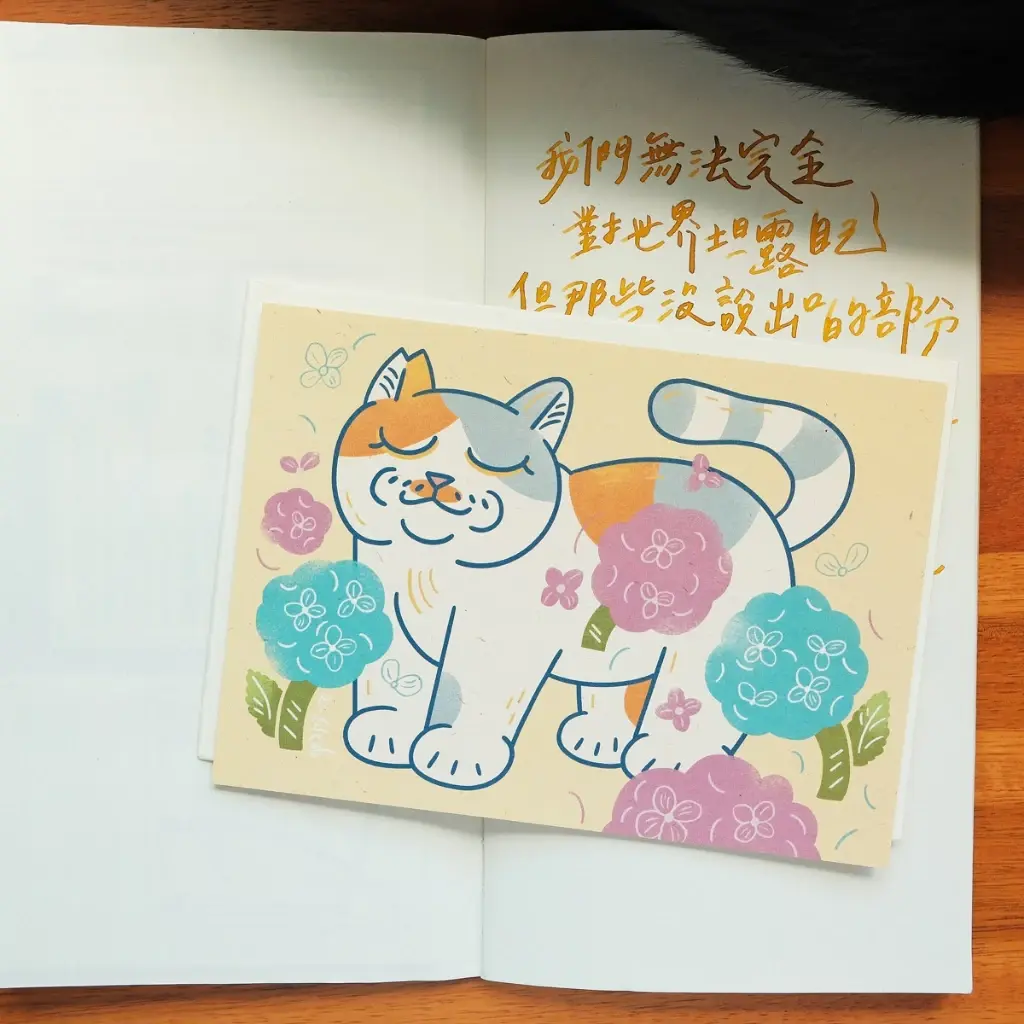 我們無法完全
對世界坦露自己
但那些沒說出口的部份